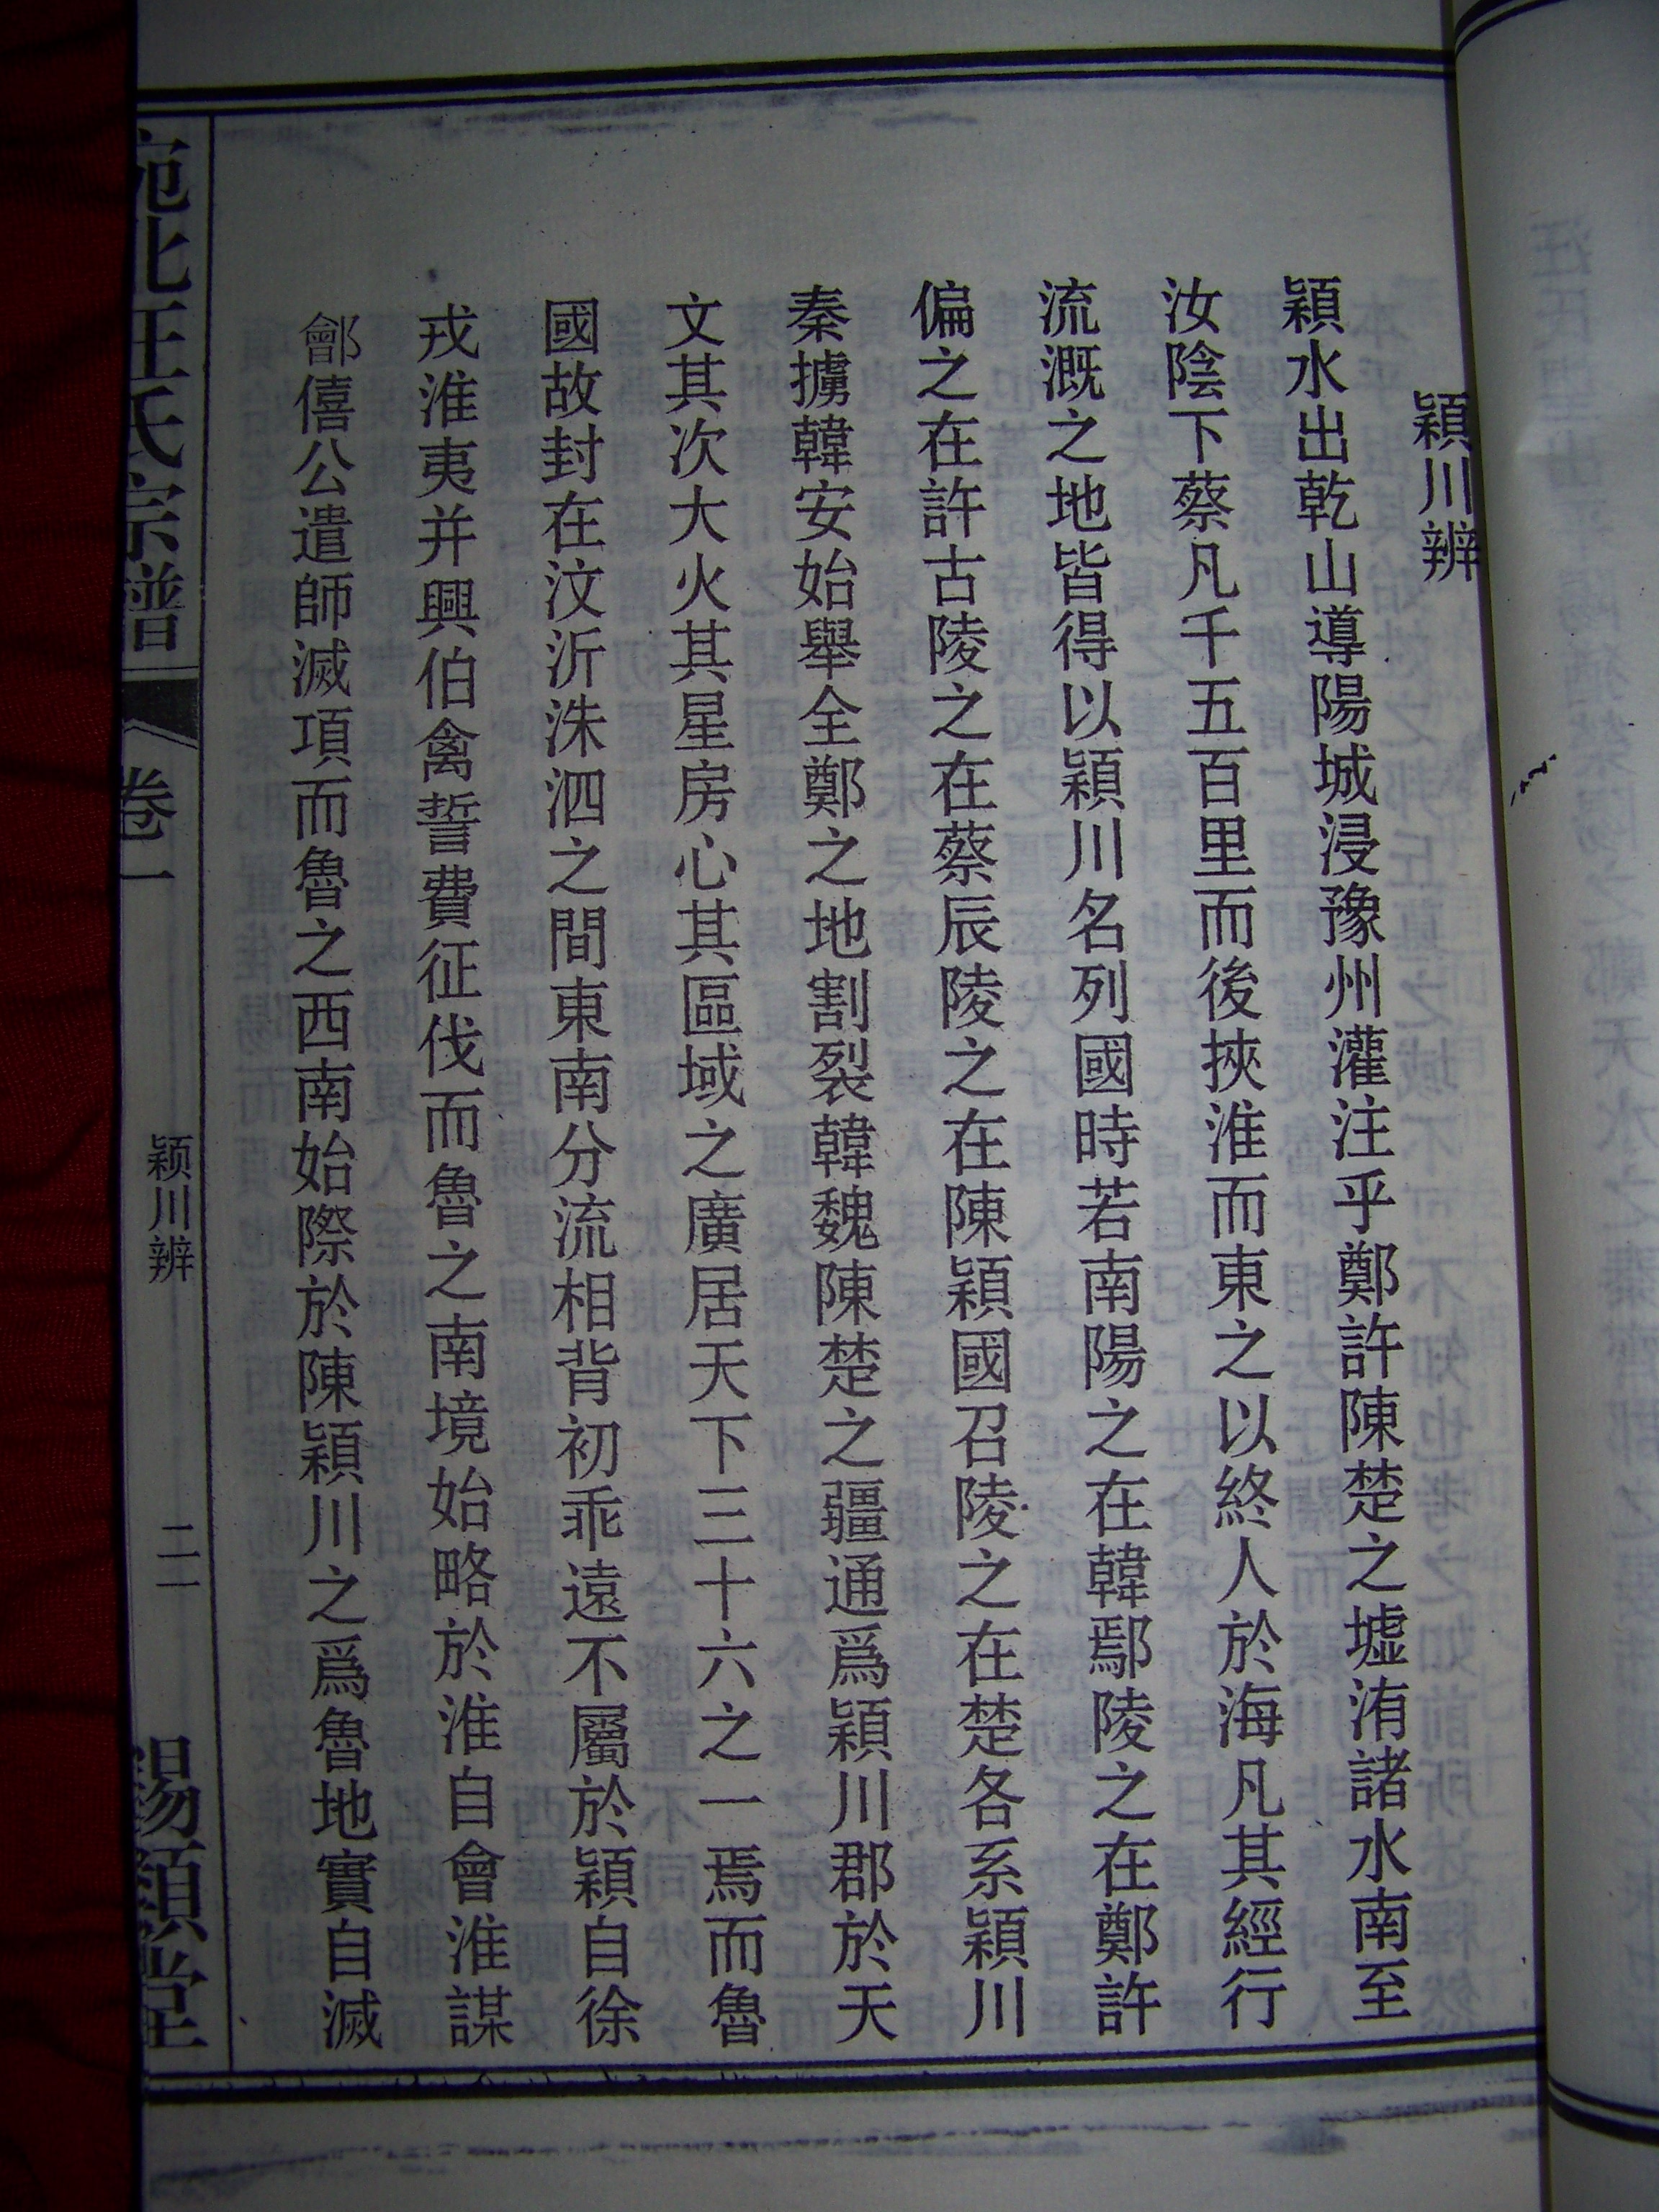 潁川辨
潁水出乾山導陽城浸豫州灌注乎鄭許陳楚之墟洧諸水南至
汝陰下蔡凡千五百里而後挾淮而東之以終人於海凡其經行
流溉之地皆得以潁川名列國時若南陽之在韓鄢陵之在鄭許
偏之在許古陵之在蔡辰陵之在陳潁國召陵之在楚各系潁川
秦擄韓安始舉全鄭之地割裂韓魏陳楚之疆通爲潁川郡於天
文其次大火其星房心其區域之廣居天下三十六之一焉而魯
國故封在汶沂洙泗之間東南分流相背初乖遠不屬於潁自徐
戎淮夷并興伯禽誓費征伐而魯之南境始略於淮自會淮謀
鄫僖公遣師滅項而魯之西南始際於陳潁川之爲魯地實自滅
北汪氏宗譜
卷一
颍川辨
二一
錫穎堂